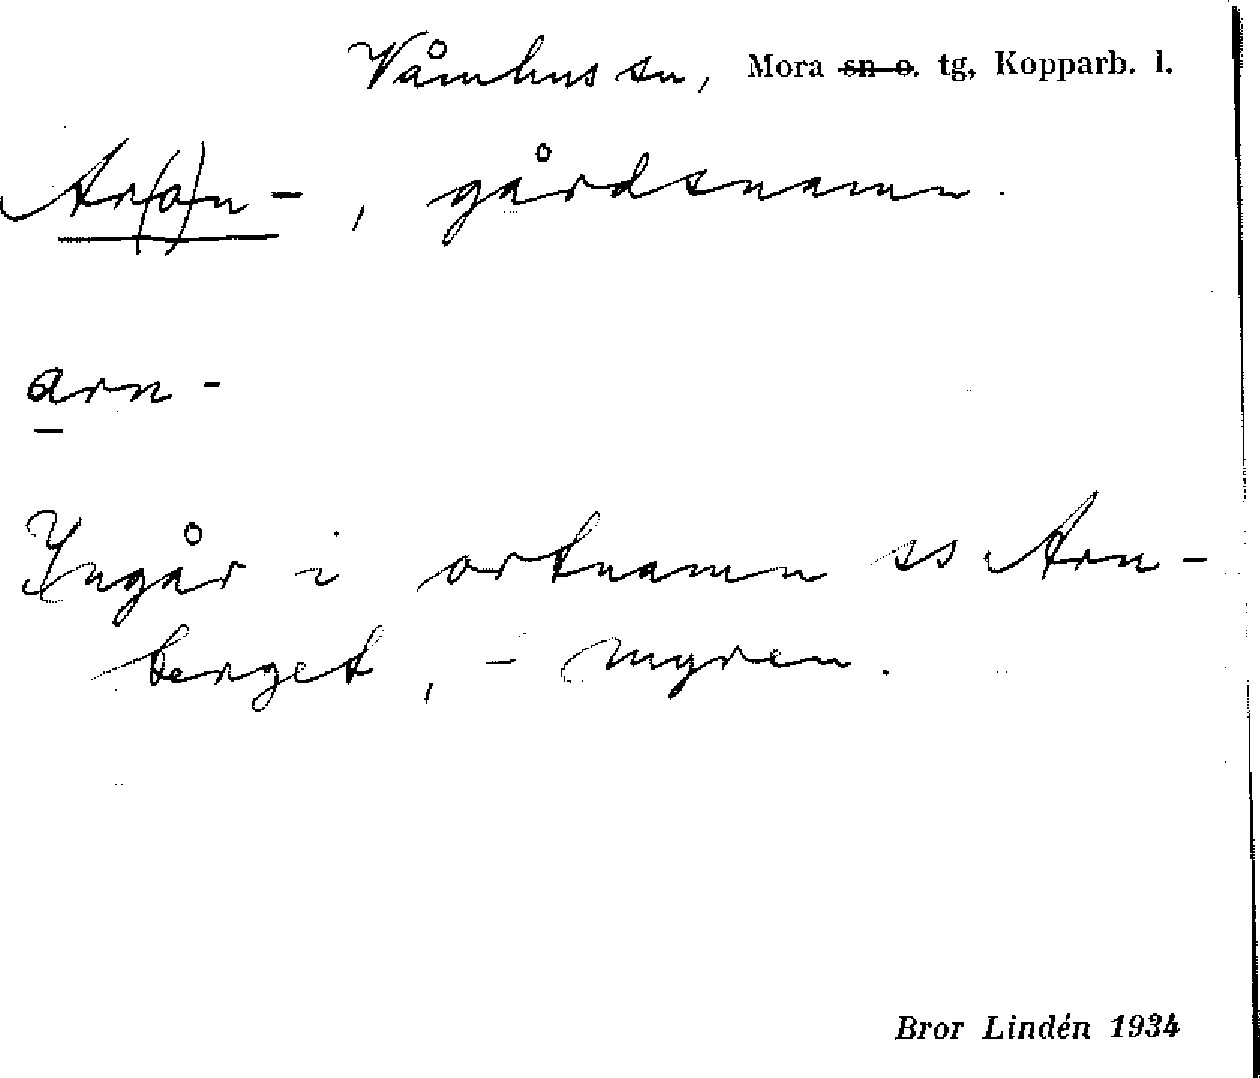 Våmhus sn, Mora sn o. tg, Kopparb. l.
Ar(o)n-, gårdsnamn.
arn-
Ingår i ortnamn ss Arn-
berget, -myren.
Bror Lindén 1934